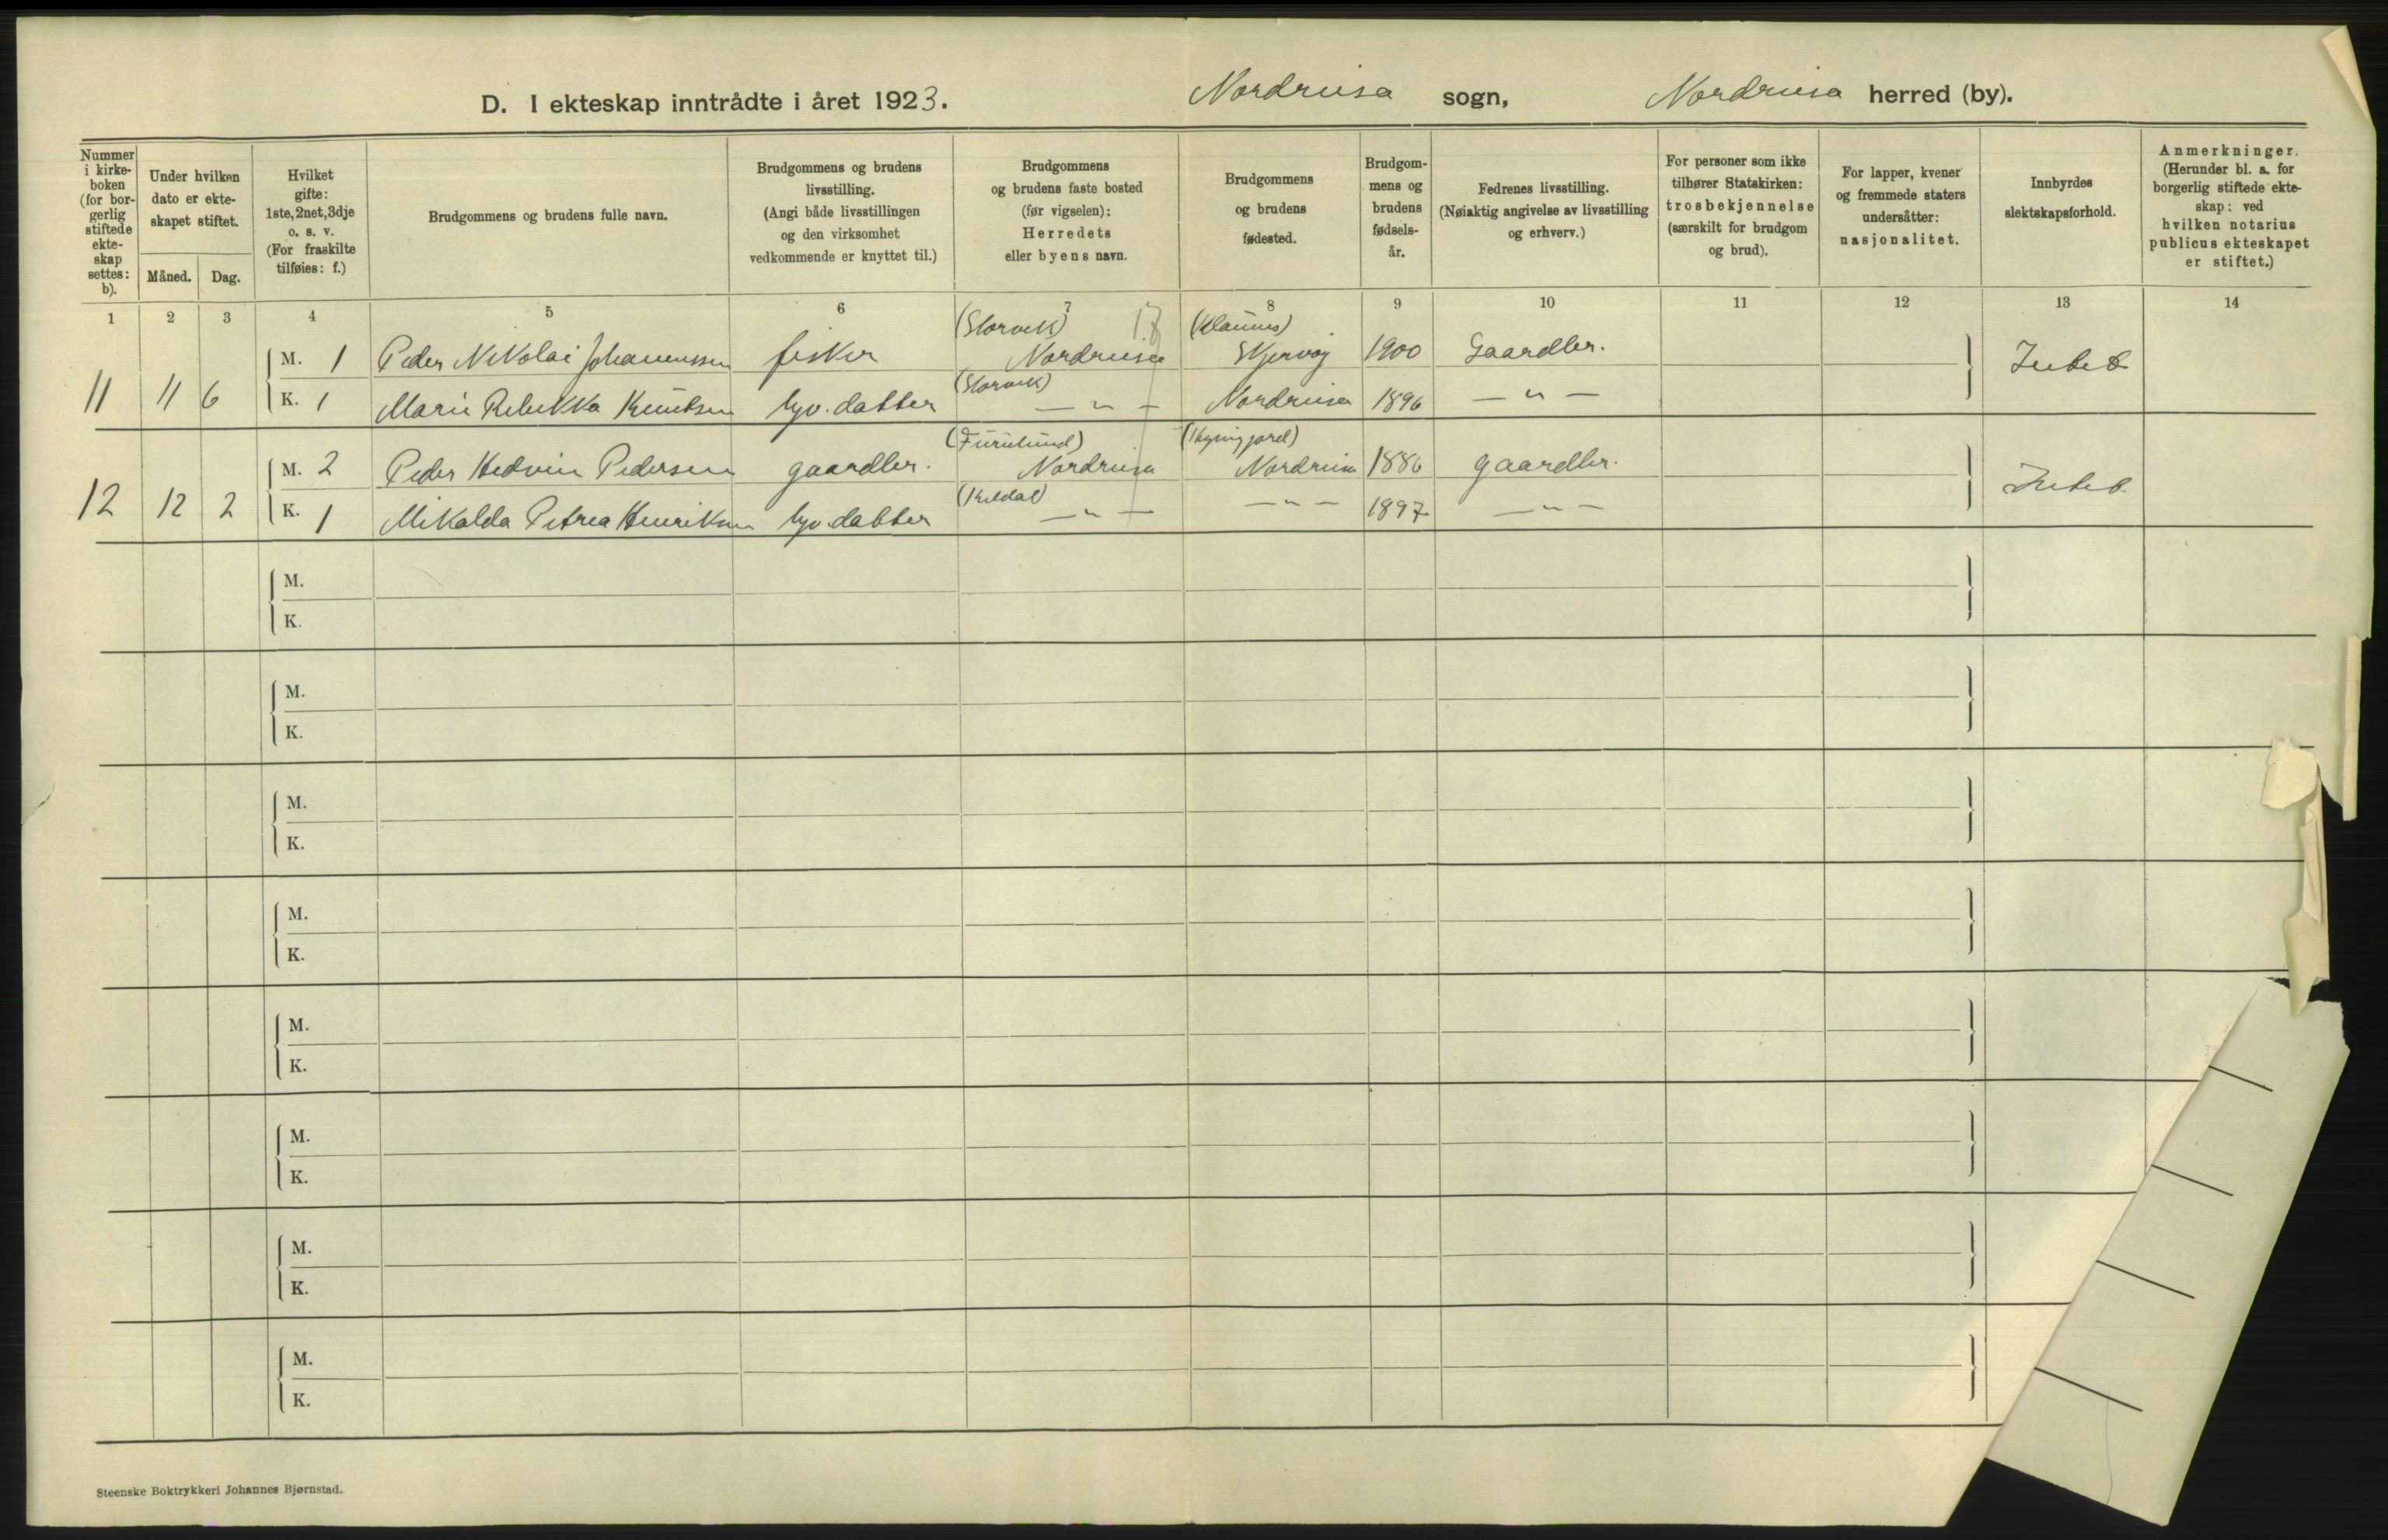 D. I ekteskap inntrådte i året 1923. Nordreisa sogn, Nordreisa herred (by).
Nummer i kirkeboken (for borgerlig stiftede ekteskap settes: b).
Under hvilken dato er ekteskapet stiftet.
Måned. Dag.
Hvilket gifte: 1ste, 2net, 3dje o. s. v. (For fraskilte tilføies: f.)
Brudgommens og brudens fulle navn.
Brudgommens og brudens livsstilling. (Angi både livsstillingen og den virksomhet vedkommende er knyttet til.)
Brudgommens og brudens faste bosted (før vigselen): Herredets eller byens navn.
Brudgommens og brudens fødested.
Brudgommens og brudens fødselsår.
Fedrenes livsstilling. (Nøiaktig angivelse av livsstilling og erhverv.)
For personer som ikke tilhører Statskirken: trosbekjennelse (særskilt for brudgom og brud).
For lapper, kvener og fremmede staters undersåtter: nasjonalitet.
Innbyrdes slektskapsforhold.
Anmerkninger. (Herunder bl. a. for borgerlig stiftede ekteskap: ved hvilken notarius publicus ekteskapet er stiftet.)
1 2 3 4 5 6 7 8 9 10 11 12 13 14
(Storvik)
M. 1 Peder Nikolai Johannessen fisker Nordreisa Skjervøy 1900 Gaardbr.
11 11 6 K. 1 Marie Rebekka Knutsen hjv. datter (Storvik) — " — Nordreisa 1896 — " —
(Furulund)
M. 2 Peder Hedvin Pedersen gaardbr. Nordreisa Nordreisa 1886 gaardbr.
12 12 2 K. 1 Mikalda Petrea Henriksen hjv. datter (Kildal) — " — — " — 1897 — " —
M.
K.
M.
K.
M.
K.
M.
K.
M.
K.
M.
K.
M.
K.
M.
K.
Steenske Boktrykkeri Johannes Bjørnstad.